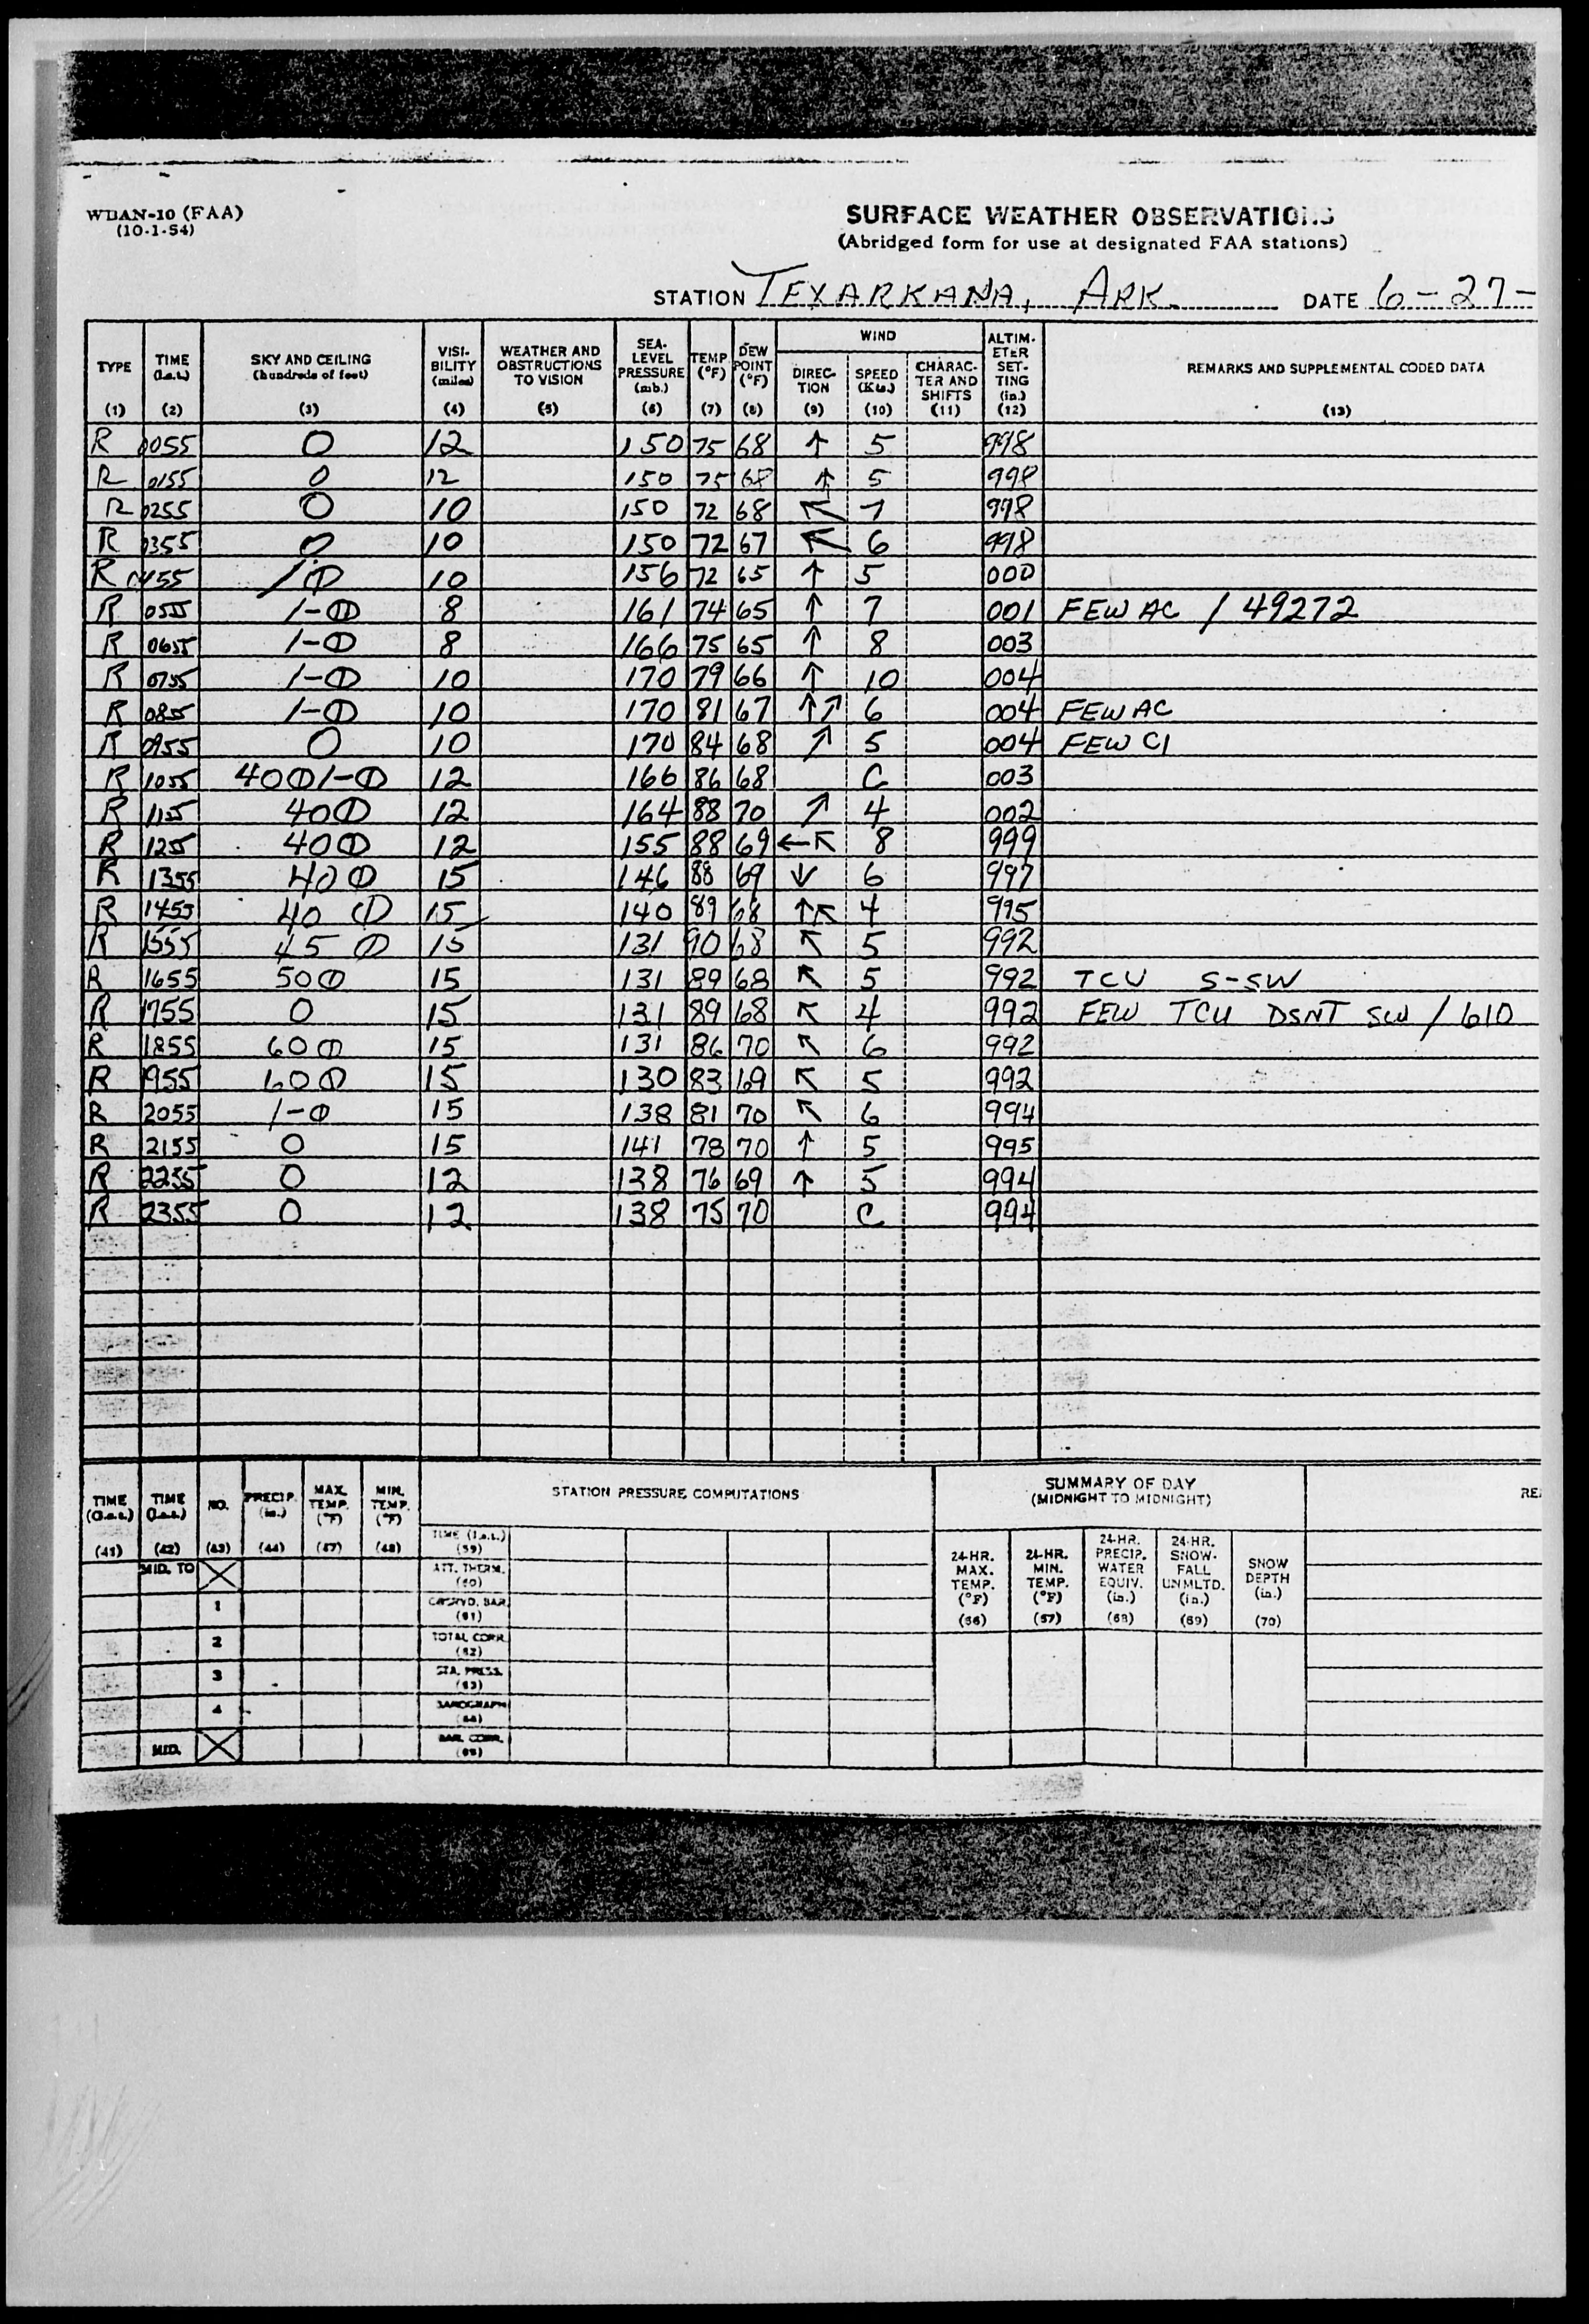 WBAN-10 (FAA)
(10-1-54)
SURFACE WEATHER OBSERVATIONS
(Abridged form for use at designated FAA stations)
STATION TEXARKANA, ARK. DATE 6-27-
TYPE (1) TIME (l.s.t.) (2) SKY AND CEILING (hundreds of feet) (3) VISI-BILITY (miles) (4) WEATHER AND OBSTRUCTIONS TO VISION (5) SEA-LEVEL PRESSURE (mb.) (6) TEMP (°F) (7) DEW POINT (°F) (8) WIND DIREC-TION (9) SPEED (Kts.) (10) CHARAC-TER AND SHIFTS (11) ALTIM-ETER SET-TING (in.) (12) REMARKS AND SUPPLEMENTAL CODED DATA (13)
R 0055 O 12 150 75 68 ↑ 5 998
R 0155 O 12 150 75 68 ↑ 5 998
R 0255 O 10 150 72 68 ↖ 7 998
R 0355 O 10 150 72 67 ↖ 6 998
R 0455 /⦶ 10 156 72 65 ↑ 5 000
R 0555 /-⦶ 8 161 74 65 ↑ 7 001 FEW AC / 49272
R 0655 /-⦶ 8 166 75 65 ↑ 8 003
R 0755 /-⦶ 10 170 79 66 ↑ 10 004
R 0855 /-⦶ 10 170 81 67 ↑↗ 6 004 FEW AC
R 0955 O 10 170 84 68 ↗ 5 004 FEW CI
R 1055 40⦶/-⦶ 12 166 86 68 C 003
R 1155 40⦶ 12 164 88 70 ↗ 4 002
R 1255 40⦶ 12 155 88 69 ←↖ 8 999
R 1355 40⦶ 15 146 88 69 ↓ 6 997
R 1455 40⦶ 15 140 89 68 ↑↖ 4 995
R 1555 45⦶ 15 131 90 68 ↖ 5 992
R 1655 50⦶ 15 131 89 68 ↖ 5 992 TCU S-SW
R 1755 O 15 131 89 68 ↖ 4 992 FEW TCU DSNT SW / 610
R 1855 60⦶ 15 131 86 70 ↖ 6 992
R 1955 60⦶ 15 130 83 69 ↖ 5 992
R 2055 /-⦶ 15 138 81 70 ↖ 6 994
R 2155 O 15 141 78 70 ↑ 5 995
R 2255 O 12 138 76 69 ↑ 5 994
R 2355 O 12 138 75 70 C 994
TIME (G.s.t.) (41) TIME (l.s.t.) (42) NO. (43) PRECIP. (in.) (44) MAX. TEMP. (°F) (47) MIN. TEMP. (°F) (48) STATION PRESSURE COMPUTATIONS
SUMMARY OF DAY
(MIDNIGHT TO MIDNIGHT)
24-HR. MAX. TEMP. (°F) (66) 24-HR. MIN. TEMP. (°F) (67) 24-HR. PRECIP. WATER EQUIV. (in.) (68) 24-HR. SNOW-FALL UNMLTD. (in.) (69) SNOW DEPTH (in.) (70)
TIME (l.s.t.) (59)
MID. TO ATT. THERM. (60)
1 OBSRVD. BAR. (61)
2 TOTAL CORR. (62)
3 STA. PRESS. (63)
4 BAROGRAPH (64)
MID. BAR. CORR. (65)